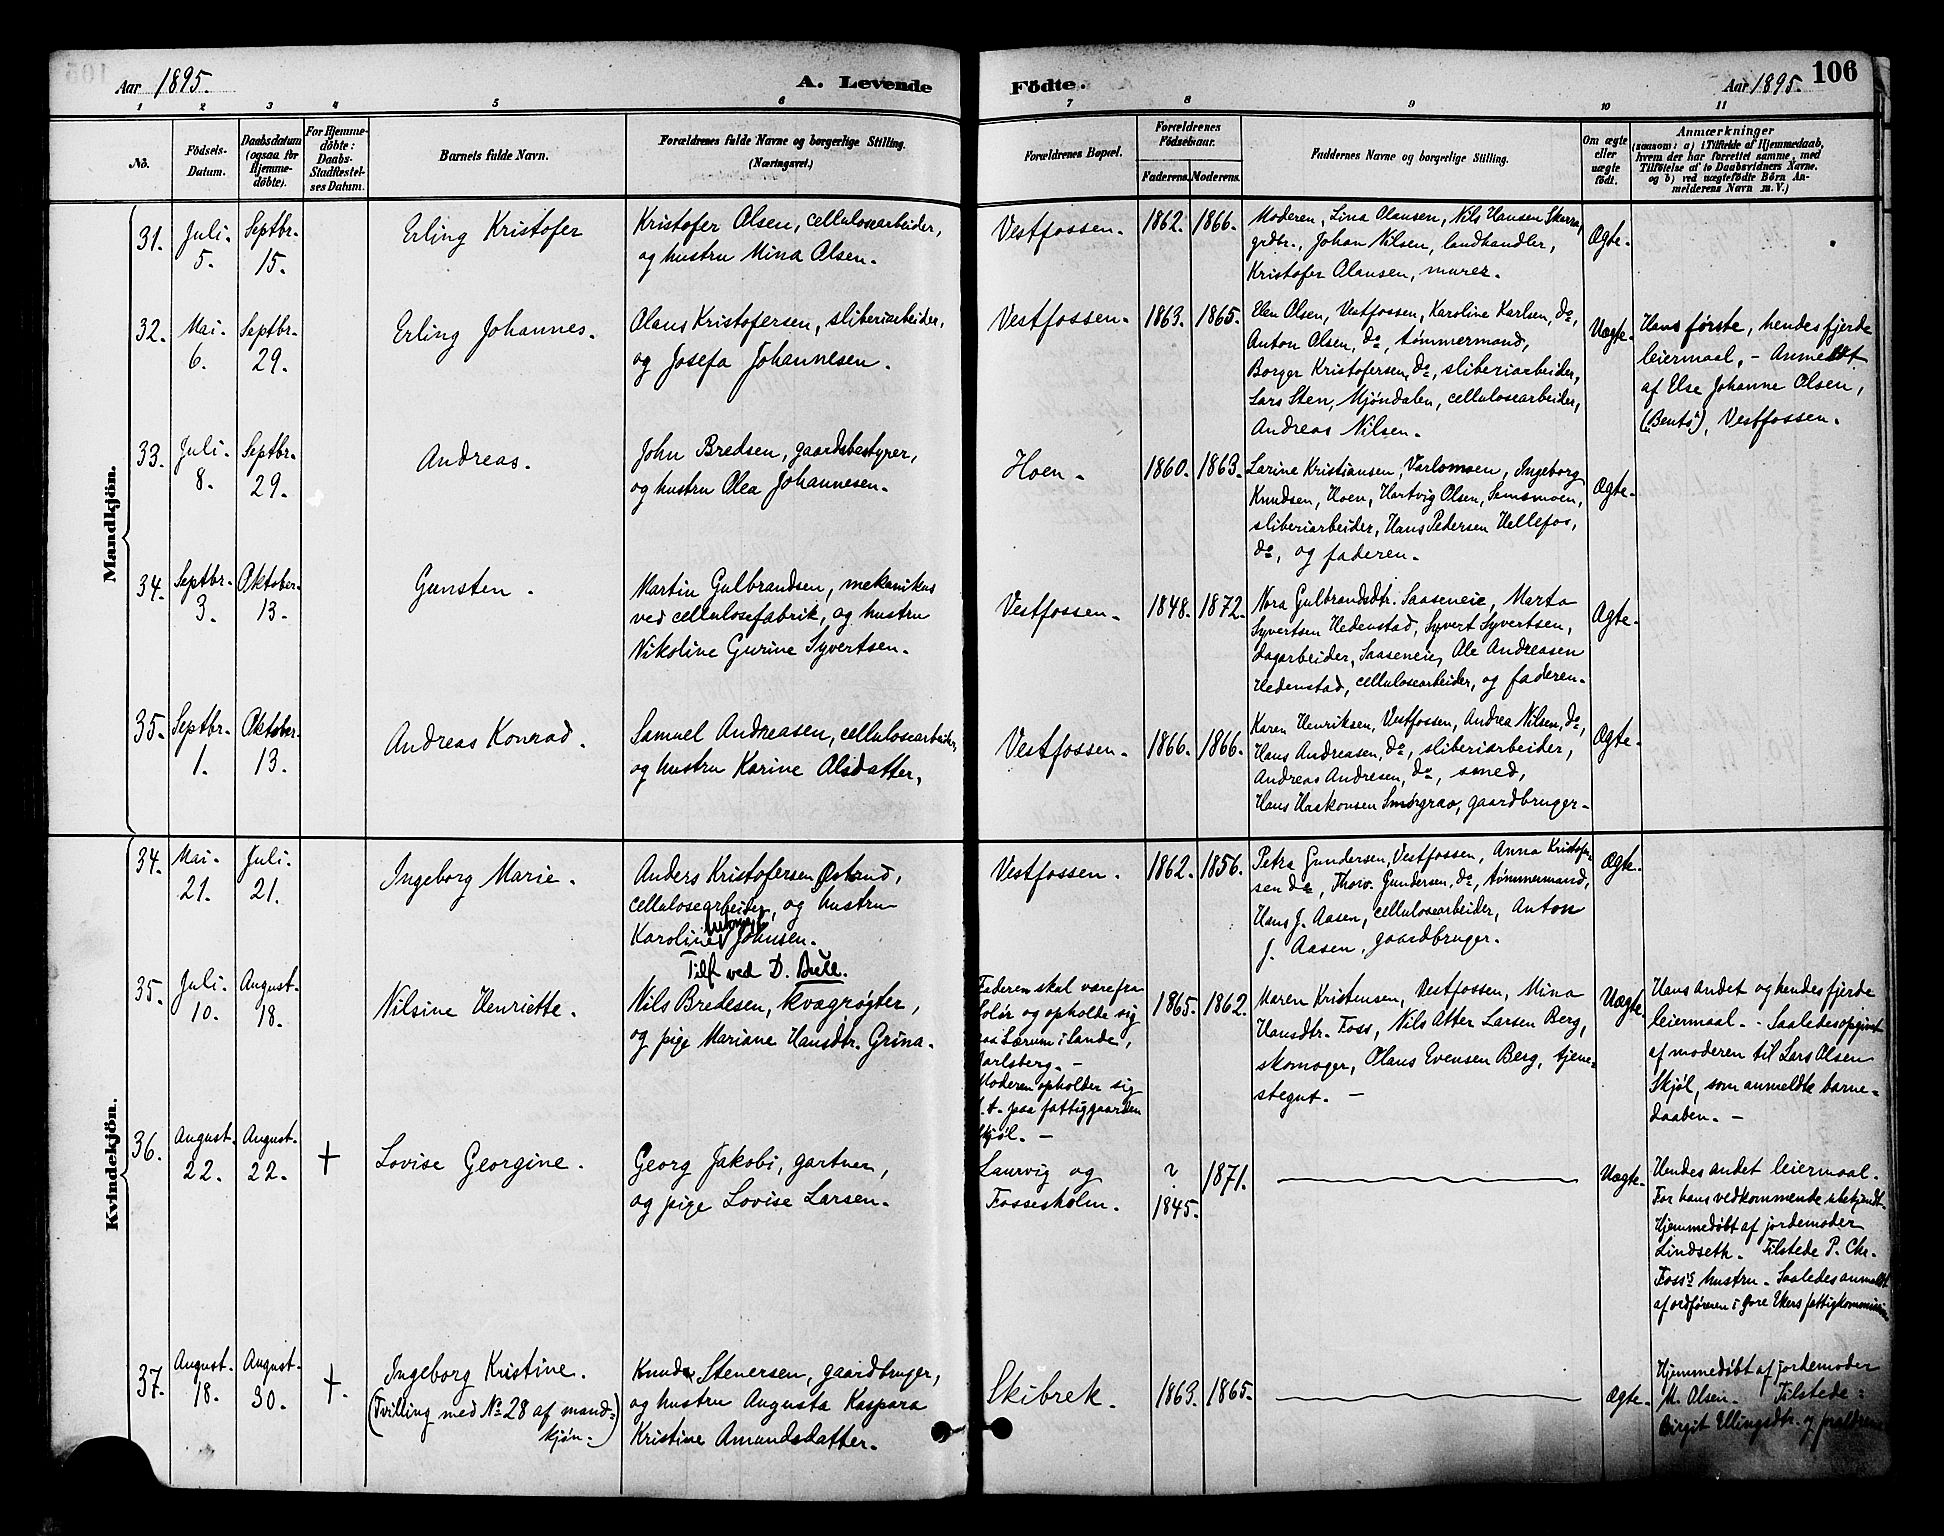 Aar 1895.
A. Levende
Födte.
Aar 1895.
106
1 2 3 4 5 6 7 8 9 10 11
No.
Födsels-
Datum.
Daabsdatum
(ogsaa for
Hjemme-
døbte).
For Hjemme-
døbte:
Daabs-
Stadfæstel-
ses Datum.
Barnets fulde Navn.
Forældrenes fulde Navne og borgerlige Stilling.
(Næringsvei.)
Forældrenes Bopæl.
Forældrenes
Födselsaar.
Faderens. Moderens.
Faddernes Navne og borgerlige Stilling.
Om ægte
eller
uægte
født.
Anmærkninger
(saasom: a) i Tilfælde af Hjemmedaab,
hvem der har forrettet samme, med
Tilföielse af to Daabsvidners Navne.
og b) ved uægtefödte Børn An-
melderens Navn m. V.)
Mandkjön.
31.
Juli.
5.
Septbr.
15.
Erling Kristofer
Kristofer Olsen, cellulosearbeider,
og hustru Mina Olsen.
Vestfossen.
1862. 1866.
Moderen, Lina Olausen, Nils Hansen Skarra,
grdbr., Johan Nilsen, landhandler,
Kristofer Olausen, murer.
Ægte.
32.
Mai.
6.
Septbr.
29.
Erling Johannes.
Olaus Kristofersen, sliberiarbeider,
og Josefa Johannesen.
Vestfossen.
1863. 1865.
Elen Olsen, Vestfossen, Karoline Karlsen, do,
Anton Olsen, do, tømmermand,
Borger Kristofersen, do, sliberiarbeider,
Lars Sten, Mjøndalen, cellulosearbeider,
Andreas Nilsen.
Uægte.
Hans første, hendes fjerde
leiermaal. - Anmeldt
af Else Johanne Olsen,
("Bents"), Vestfossen.
33.
Juli.
8.
Septbr.
29.
Andreas.
John Bredsen, gaardsbestyrer,
og hustru Olea Johannesen.
Hoen.
1860. 1863.
Larine Kristiansen, Varlomoen, Ingeborg
Knudsen, Hoen, Hartvig Olsen, Semsmoen,
sliberiarbeider, Hans Pedersen Hellefos,
do, og faderen.
Ægte.
34.
Septbr.
3.
Oktober.
13.
Gunsten.
Martin Gulbrandsen, mekanikus
ved cellulosefabrik, og hustru
Nikoline Gurine Syvertsen.
Vestfossen.
1848. 1872.
Nora Gulbrandsdtr. Saaseneie, Marta
Syvertsen Hedenstad, Syvert Syvertsen,
dagarbeider, Saaseneie, Ole Andreasen
Hedenstad, cellulosearbeider, og faderen.
Ægte.
35.
Septbr.
1.
Oktober.
13.
Andreas Konrad.
Samuel Andreasen, cellulosearbeider,
og hustru Karine Olsdatter,
Vestfossen.
1866. 1866.
Karen Henriksen, Vestfossen, Andrea Nilsen, do,
Hans Andreasen, do, sliberiarbeider,
Andreas Andresen, do, smed,
Hans Haakonsen Smørgrav, gaardbruger.
Ægte.
Kvindekjön.
34.
Mai.
21.
Juli.
21.
Ingeborg Marie.
Anders Kristofersen Østrud,
cellulosearbeider, og hustru
Karoline Johnsen.
Vestfossen.
1862. 1856.
Petra Gundersen, Vestfossen, Anna Kristofer-
sen do, Thorv. Gundersen, do, tømmermand,
Hans J. Aasen, cellulosearbeider, Anton
J. Aasen, gaardbruger.
Ægte.
35.
Juli.
10.
August.
18.
Nilsine Henriette.
Tilf ved D. Bull.
Nils Bredesen, kvægrøgter,
og pige Mariane Hansdtr. Grina.
Faderen skal være fra
Solør og opholde sig
paa Særum i Sande,
Jarlsberg. -
Moderen opholder sig
f. t. paa fattiggaarden
Skjøl. -
1865. 1862.
Maren Kristensen, Vestfossen, Mina
Hansdtr. Foss, Nils Atter Larsen Berg,
skomager, Olaus Evensen Berg, tjene-
stegut. -
Uægte.
Hans andet og hendes fjerde
leiermaal. - Saaledes opgivet
af moderen til Lars Olsen
Skjøl, som anmeldte barne-
daaben. -
36.
August.
22.
August.
22.
+
Lovise Georgine.
Georg Jakobi, gartner,
og pige Lovise Larsen.
Laurvig og
Fossesholm.
?
1845.
1871.
Uægte.
Hendes andet leiermaal.
For hans vedkommende ubekjendt.
Hjemmedøbt af jordemoder
Lindseth. Tilstede P. Chr.
Foss's hustru. Saaledes anmeldt
af ordføreren i Øvre Ekers fattigkommission
37.
August.
18.
August.
30.
+.
Ingeborg Kristine.
(Tvilling med No 28 af mand-
kjøn.)
Knud Stenersen, gaardbruger,
og hustru Augusta Kaspara
Kristine Amundsdatter.
Skibrek.
1863. 1865.
Ægte.
Hjemmedøbt af jordemoder
M. Olsen. Tilstede:
Birgit Ellingsdtr. og forældrene